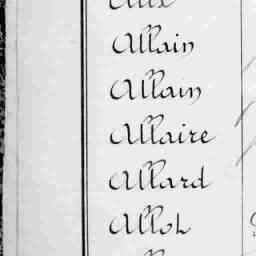 Allain
Allain
Allaire
Allard
Alloh